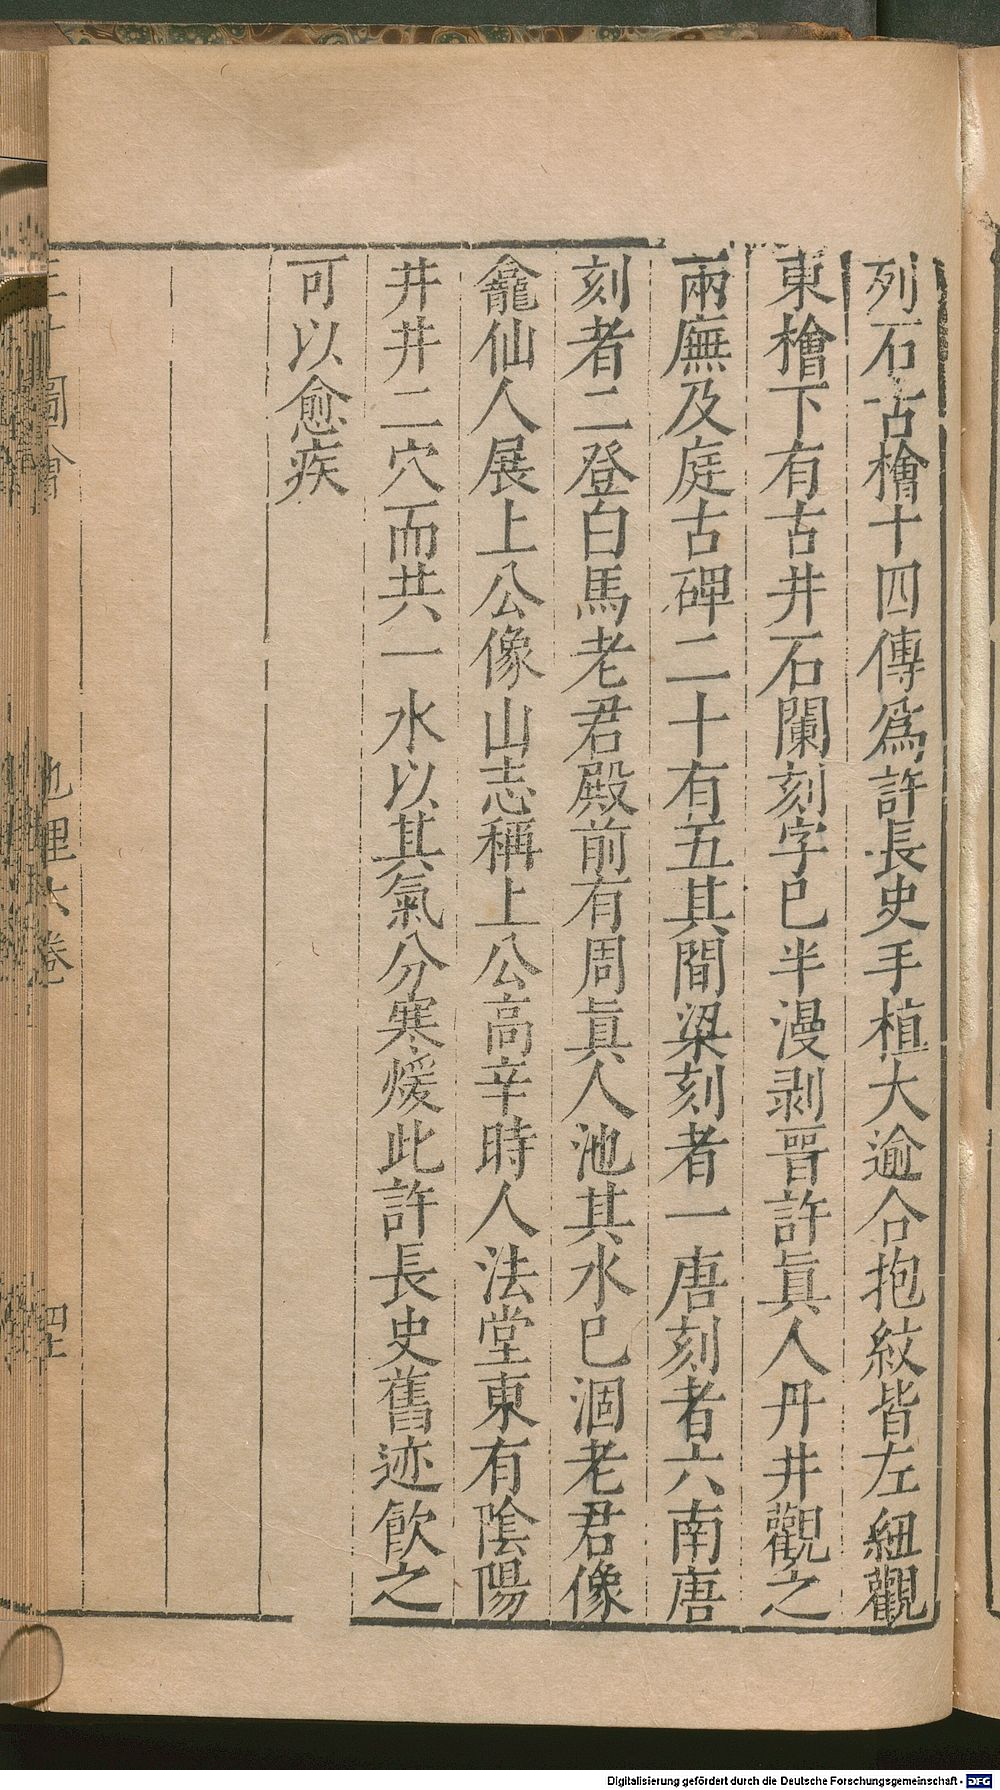 列石古檜十四傳爲許長史手植大逾合抱紋皆左紐觀
東檜下有古井石闌刻字已半漫剥晉許眞人丹井觀之
兩廡及庭古碑二十有五其間梁刻者一唐刻者六南唐
刻者二登白馬老君殿前有周眞人池其水已涸老君像
龕仙人展上公像山志稱上公高辛時人法堂東有陰陽
井井二穴而共一水以其氣分寒煖此許長史舊迹飮之
可以愈疾
圖會
地理六卷
Digitalisierung gefördert durch die Deutsche Forschungsgemeinschaft - DFG